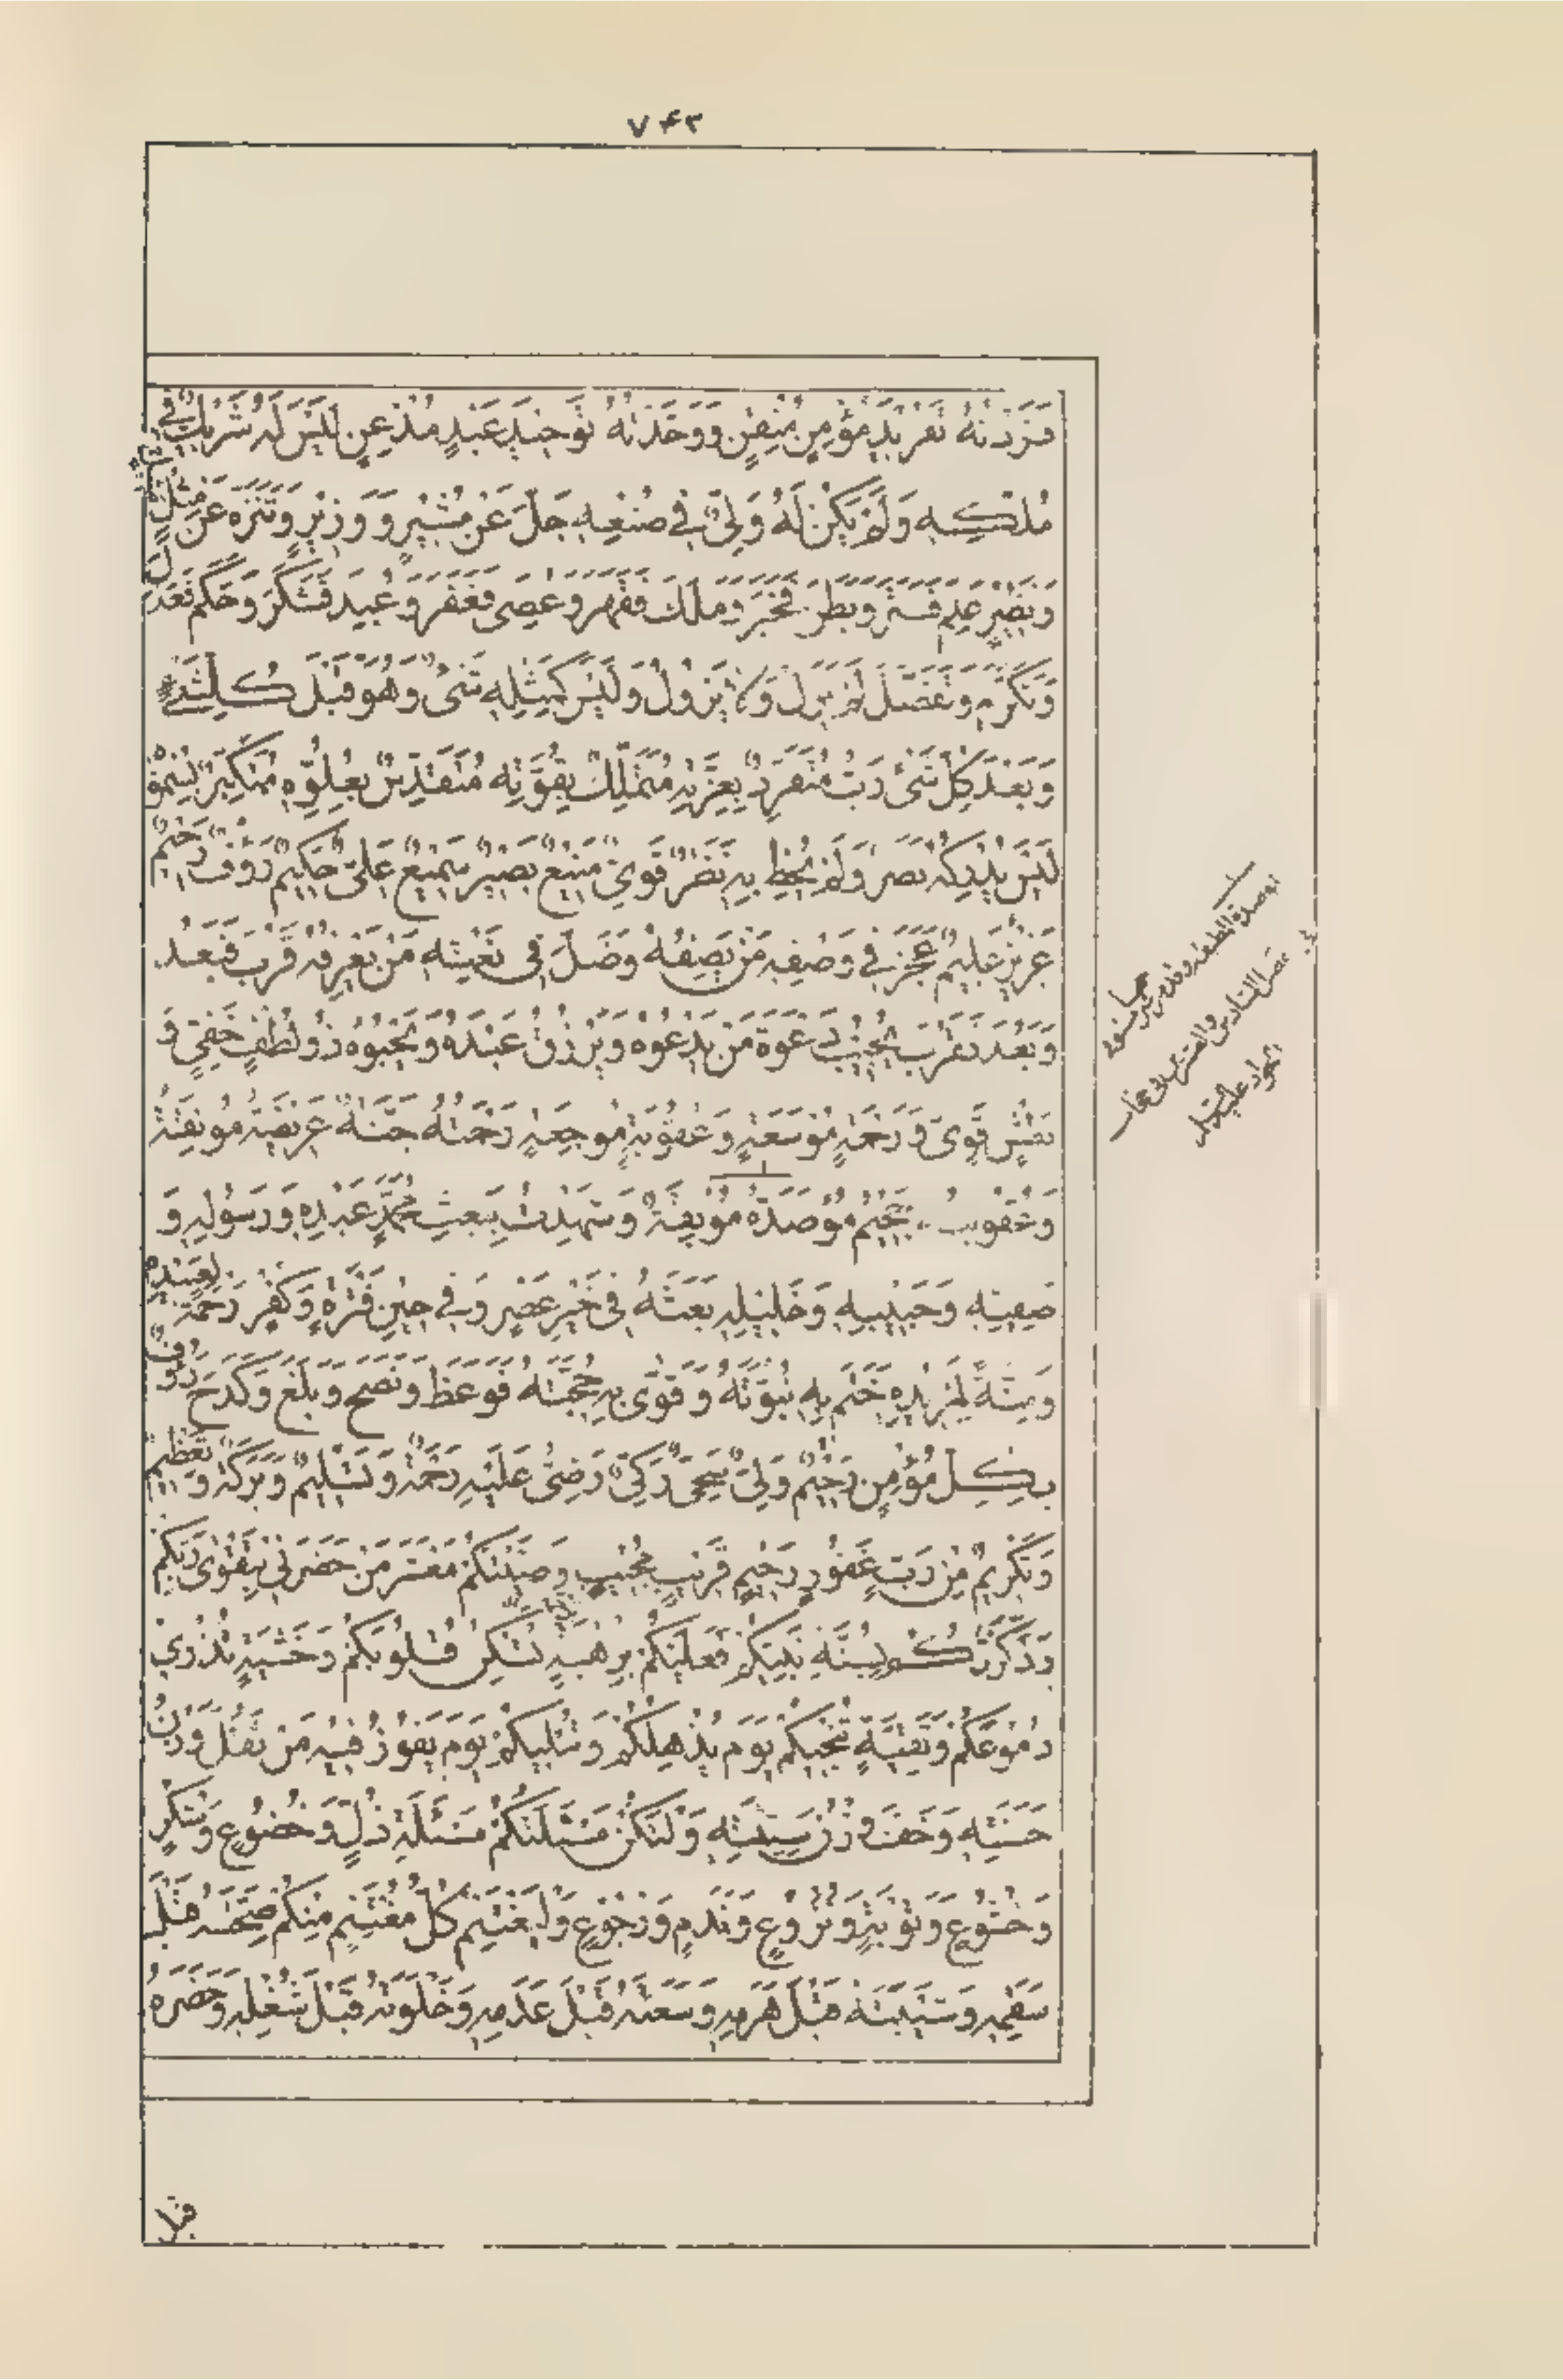 ۷۴۳
فَرَّدْتُهُ تَفْرِيدَ مُؤْمِنٍ مُتْقِنٍ وَوَحَّدْتُهُ تَوْحِيدَ عَبْدٍ مُذْعِنٍ لَيْسَ لَهُ شَرِيكٌ فِي
مُلْكِهِ وَلَمْ يَكُنْ لَهُ وَلِيٌّ فِي صُنْعِهِ جَلَّ عَنْ مُشِيرٍ وَوَزِيرٍ وَتَنَزَّهَ عَنْ مِثْلٍ
وَنَصِيرٍ عَلِمَ فَسَتَرَ وَبَطَنَ فَخَبَرَ وَمَلَكَ فَقَهَرَ وَعُصِيَ فَغَفَرَ وَعُبِدَ فَشَكَرَ وَحَكَمَ فَعَدَلَ
وَتَكَرَّمَ وَتَفَضَّلَ لَمْ يَزَلْ وَلَا يَزُولُ وَلَيْسَ كَمِثْلِهِ شَيْءٌ وَهُوَ قَبْلَ كُلِّ شَيْءٍ
وَبَعْدَ كُلِّ شَيْءٍ رَبٌّ مُتَفَرِّدٌ بِعِزَّتِهِ مُتَمَلِّكٌ بِقُوَّتِهِ مُتَقَدِّسٌ بِعُلُوِّهِ مُتَكَبِّرٌ بِسُمُوِّهِ
لَيْسَ يُدْرِكُهُ بَصَرٌ وَلَمْ يُحِطْ بِهِ نَظَرٌ قَوِيٌّ مَنِيعٌ بَصِيرٌ سَمِيعٌ عَلِيٌّ حَكِيمٌ رَؤُفٌ رَحِيمٌ
عَزِيزٌ عَلِيمٌ عَجَزَ فِي وَصْفِهِ مَنْ يَصِفُهُ وَضَلَّ فِي نَعْتِهِ مَنْ يَعْرِفُهُ قَرُبَ فَبَعُدَ
وَبَعُدَ فَقَرُبَ يُجِيبُ دَعْوَةَ مَنْ يَدْعُوهُ وَيَرْزُقُ عَبْدَهُ وَيَحْبُوهُ ذُو لُطْفٍ خَفِيٍّ وَ
بَطْشٍ قَوِيٍّ وَرَحْمَةٍ مُوسَعَةٍ وَعُقُوبَةٍ مُوجِعَةٍ رَحْمَتُهُ جَنَّةٌ عَرِيضَةٌ مُونِقَةٌ
وَعُقُوبَتُهُ جَحِيمٌ مُؤْصَدَةٌ مُوبِقَةٌ وَشَهِدْتُ بِبَعْثِ مُحَمَّدٍ عَبْدِهِ وَرَسُولِهِ وَ
صَفِيِّهِ وَحَبِيبِهِ وَخَلِيلِهِ بَعَثَهُ فِي خَيْرِ عَصْرٍ وَفِي حِينِ فَتْرَةٍ وَكُفْرٍ رَحْمَةً لِعَبِيدِهِ
وَمِنَّةً لِمَزِيدِهِ خَتَمَ بِهِ نُبُوَّتَهُ وَقَوَّى بِهِ حُجَّتَهُ فَوَعَظَ وَنَصَحَ وَبَلَّغَ وَكَدَحَ رَؤُفٌ
بِكُلِّ مُؤْمِنٍ رَحِيمٌ وَلِيٌّ سَخِيٌّ زَكِيٌّ رَضِيٌّ عَلَيْهِ رَحْمَةٌ وَتَسْلِيمٌ وَبَرَكَةٌ وَتَعْظِيمٌ
وَتَكْرِيمٌ مِنْ رَبٍّ غَفُورٍ رَحِيمٍ قَرِيبٍ مُجِيبٍ وَصَّيْتُكُمْ مَعْشَرَ مَنْ حَضَرَنِي بِتَقْوَى رَبِّكُمْ
وَذَكَّرْتُكُمْ بِسُنَّةِ نَبِيِّكُمْ فَعَلَيْكُمْ بِرَهْبَةٍ تُسْكِنُ قُلُوبَكُمْ وَخَشْيَةٍ تُذْرِي
دُمُوعَكُمْ وَتَقِيَّةٍ تُنْجِيكُمْ يَوْمَ يُذْهِلُكُمْ وَتُبْلِيكُمْ يَوْمَ يَفُوزُ فِيهِ مَنْ ثَقُلَ وَزْنُ
حَسَنَتِهِ وَخَفَّ وَزْنُ سَيِّئَتِهِ وَلْتَكُنْ مَسْئَلَتُكُمْ مَسْئَلَةَ ذُلٍّ وَخُضُوعٍ وَشُكْرٍ
وَخُشُوعٍ وَتَوْبَةٍ وَنُزُوعٍ وَنَدَمٍ وَرُجُوعٍ وَلْيَغْتَنِمْ كُلُّ مُغْتَنِمٍ مِنْكُمْ صِحَّتَهُ قَبْلَ
سَقَمِهِ وَشَيْبَتَهُ قَبْلَ هَرَمِهِ وَسَعَتَهُ قَبْلَ عَدَمِهِ وَخَلْوَتَهُ قَبْلَ شُغْلِهِ وَحَضَرَهُ
قبل